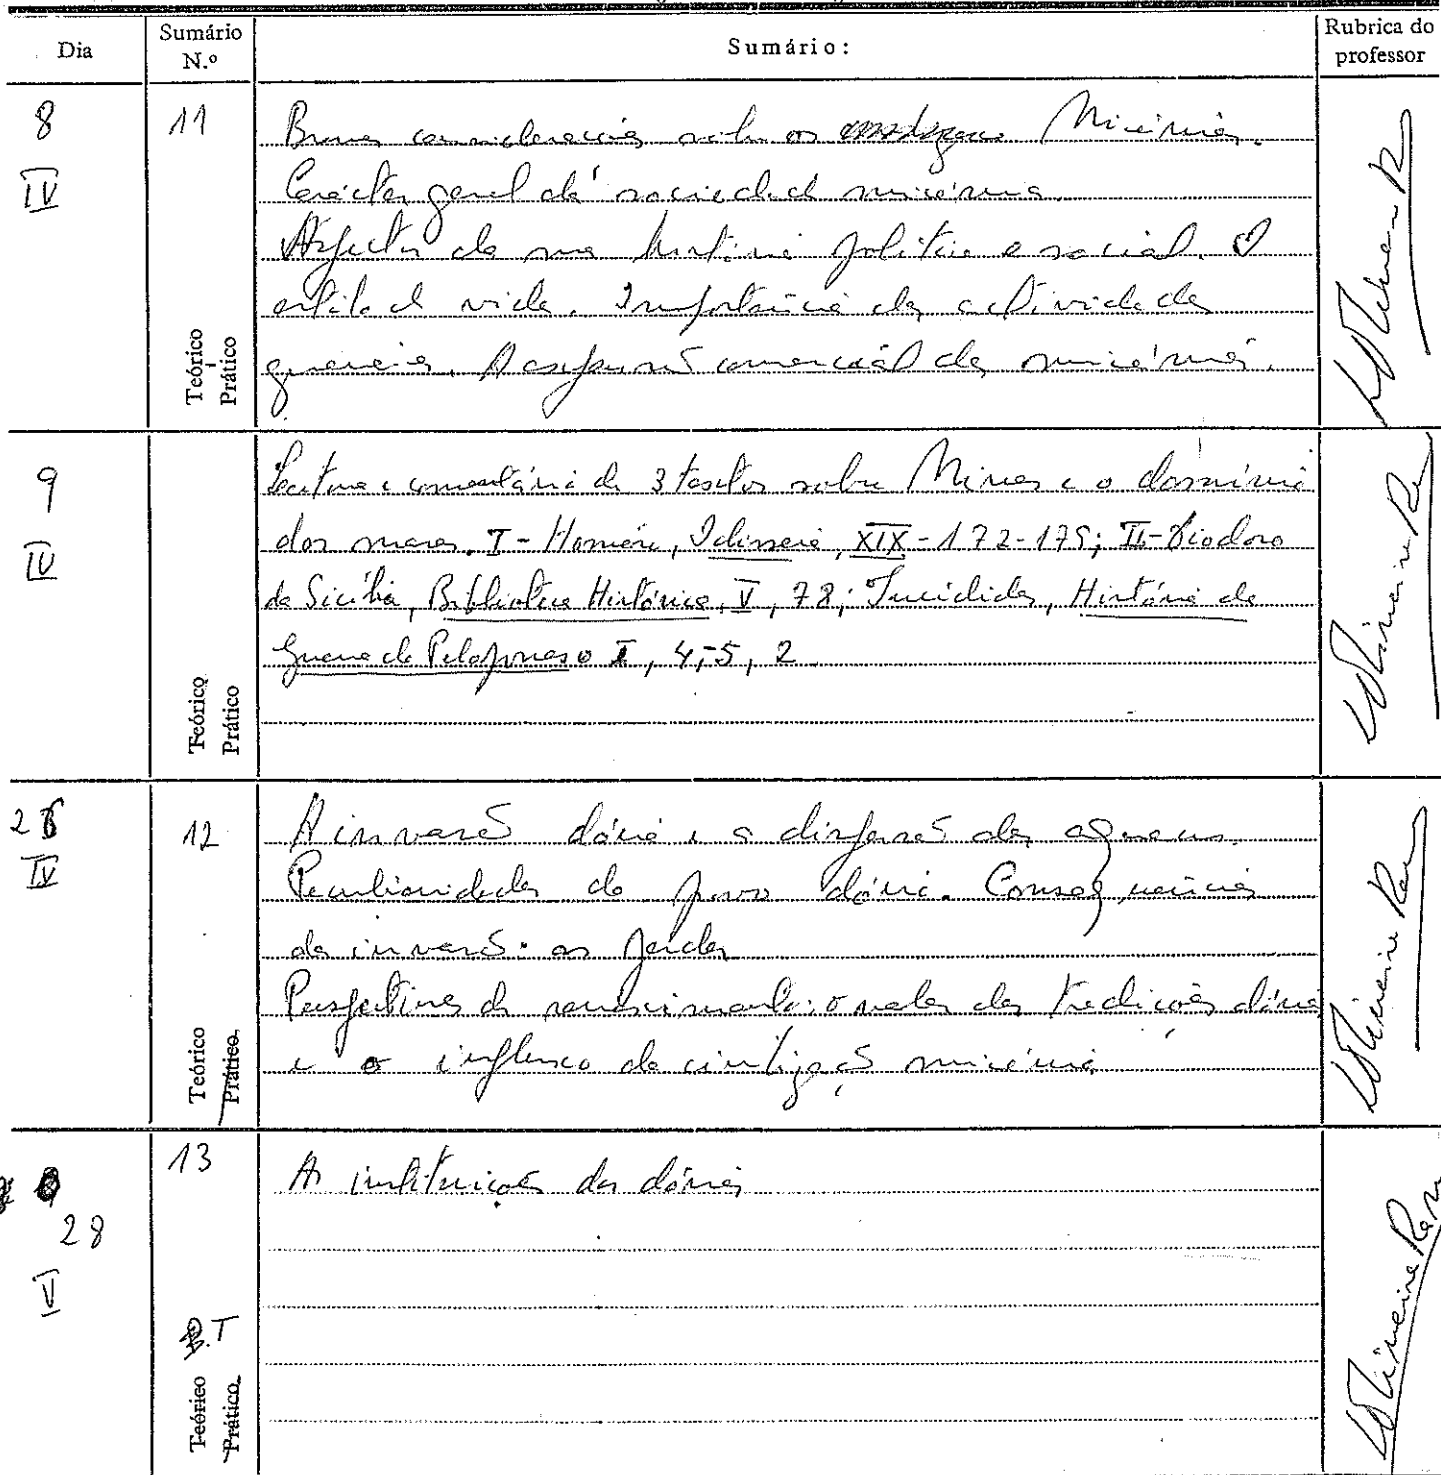 Dia
Sumário N.º
Sumário:
Rubrica do professor
8
IV
11
Breves considerações sobre os Micénios.
Carácter geral da sociedade micénica.
Aspectos da sua história política e social. O
estilo de vida. Importância das actividades
guerreiras. A expansão comercial dos micénios.
Teórico
Prático
9
IV
Leitura e comentário de 3 textos sobre Minos e o domínio
dos mares. I - Homero, Odisseia, XIX - 172-179; II - Diodoro
da Sicília, Biblioteca Histórica, V, 78; Tucídides, História da
Guerra do Peloponeso I, 4,-5, 2
Teórico
Prático
IV
12
A invasão dória e a dispersão dos aqueus.
Peculiaridades do povo dório. Consequências
da invasão: as perdas
Perspectivas de renascimento: o valor das tradições dórias
e o influxo da civilização micénica
Teórico
Prático
28
V
13
As instituições dos dórios
T
Teórico
Prático